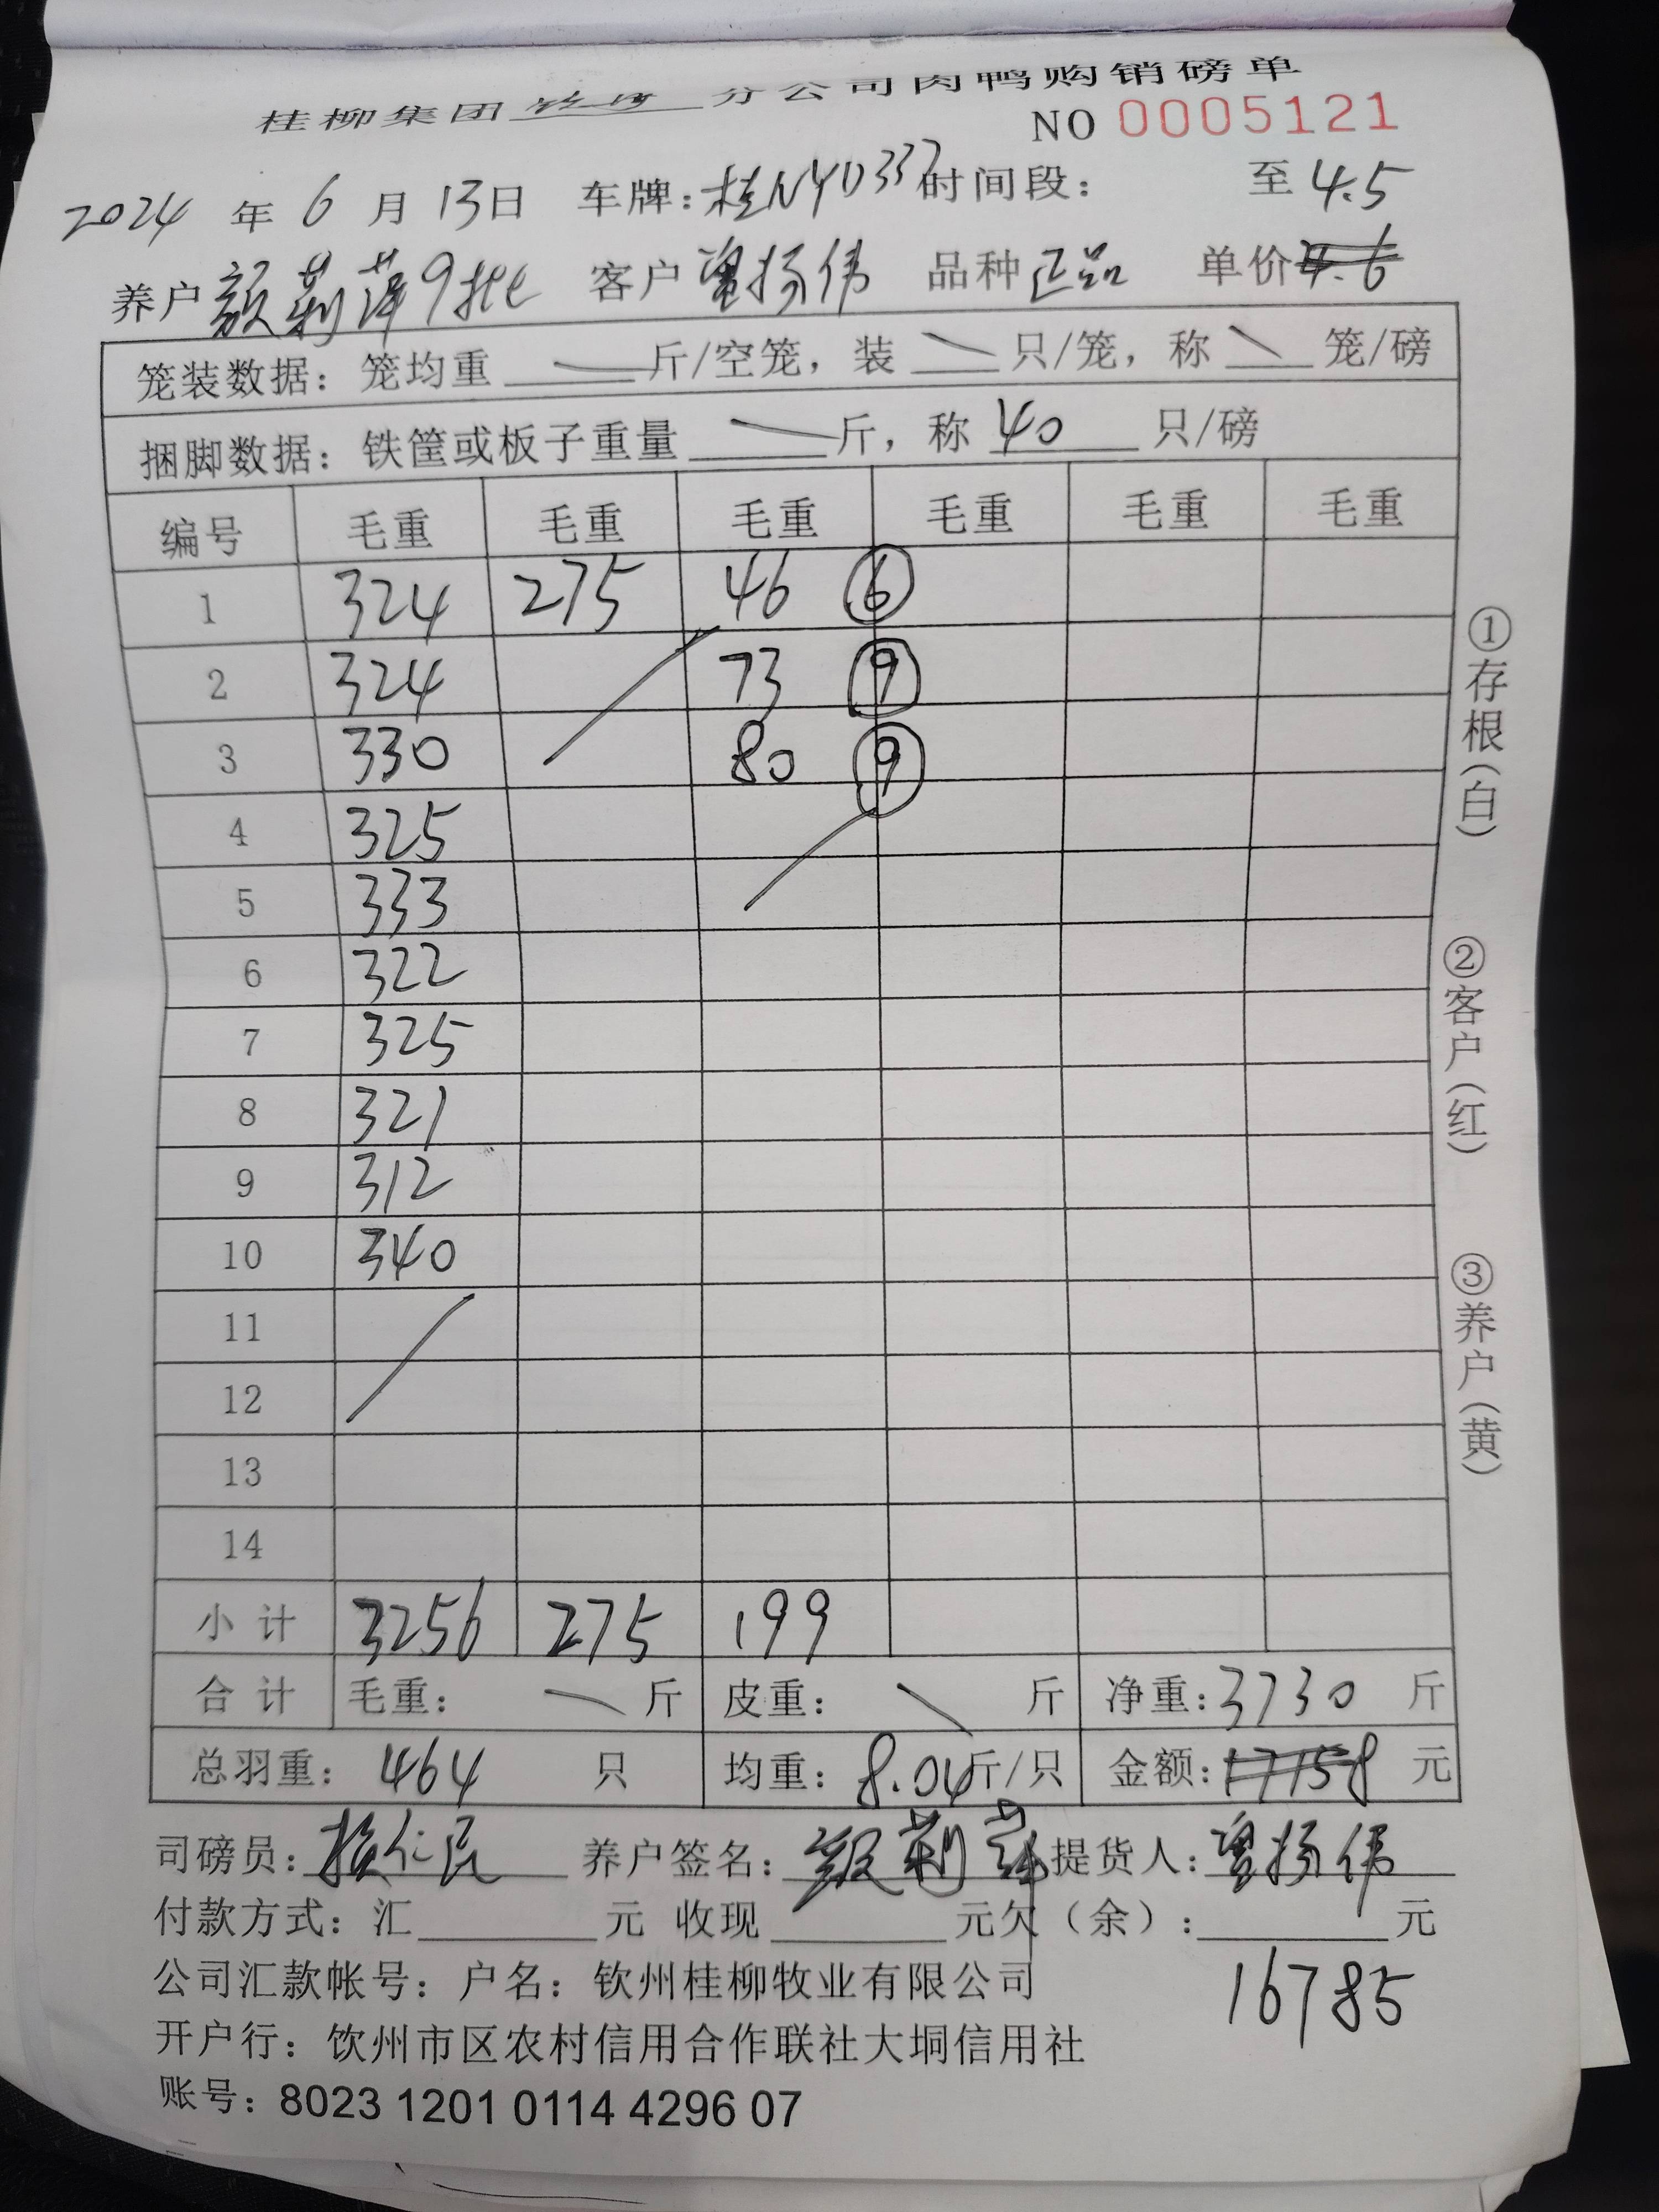 桂柳集团 分公司肉鸭购销磅单
NO 0005121
2024 年 6 月 13日 车牌:桂NYD337 时间段: 至 4.5
养户 颜莉萍9批 客户 扬伟 品种 正品 单价 4.6
笼装数据: 笼均重 斤/空笼, 装 只/笼, 称 笼/磅
捆脚数据: 铁筐或板子重量 斤, 称 40 只/磅
编号 毛重 毛重 毛重 毛重 毛重 毛重
1 324 275 46 6
2 324 73 9
3 330 80 9
4 325
5 333
6 322
7 325
8 321
9 312
10 340
11
12
13
14
小 计 3256 275 199
合 计 毛重: 斤 皮重: 斤 净重: 3730 斤
总羽重: 464 只 均重: 8.04 斤/只 金额: 17158 元
司磅员: 仁民 养户签名: 颜莉萍 提货人: 扬伟
付款方式: 汇 元 收现 元欠(余): 元
16785
公司汇款帐号: 户名: 钦州桂柳牧业有限公司
开户行: 饮州市区农村信用合作联社大垌信用社
账号: 8023 1201 0114 4296 07
①存根(白)
②客户(红)
③养户(黄)